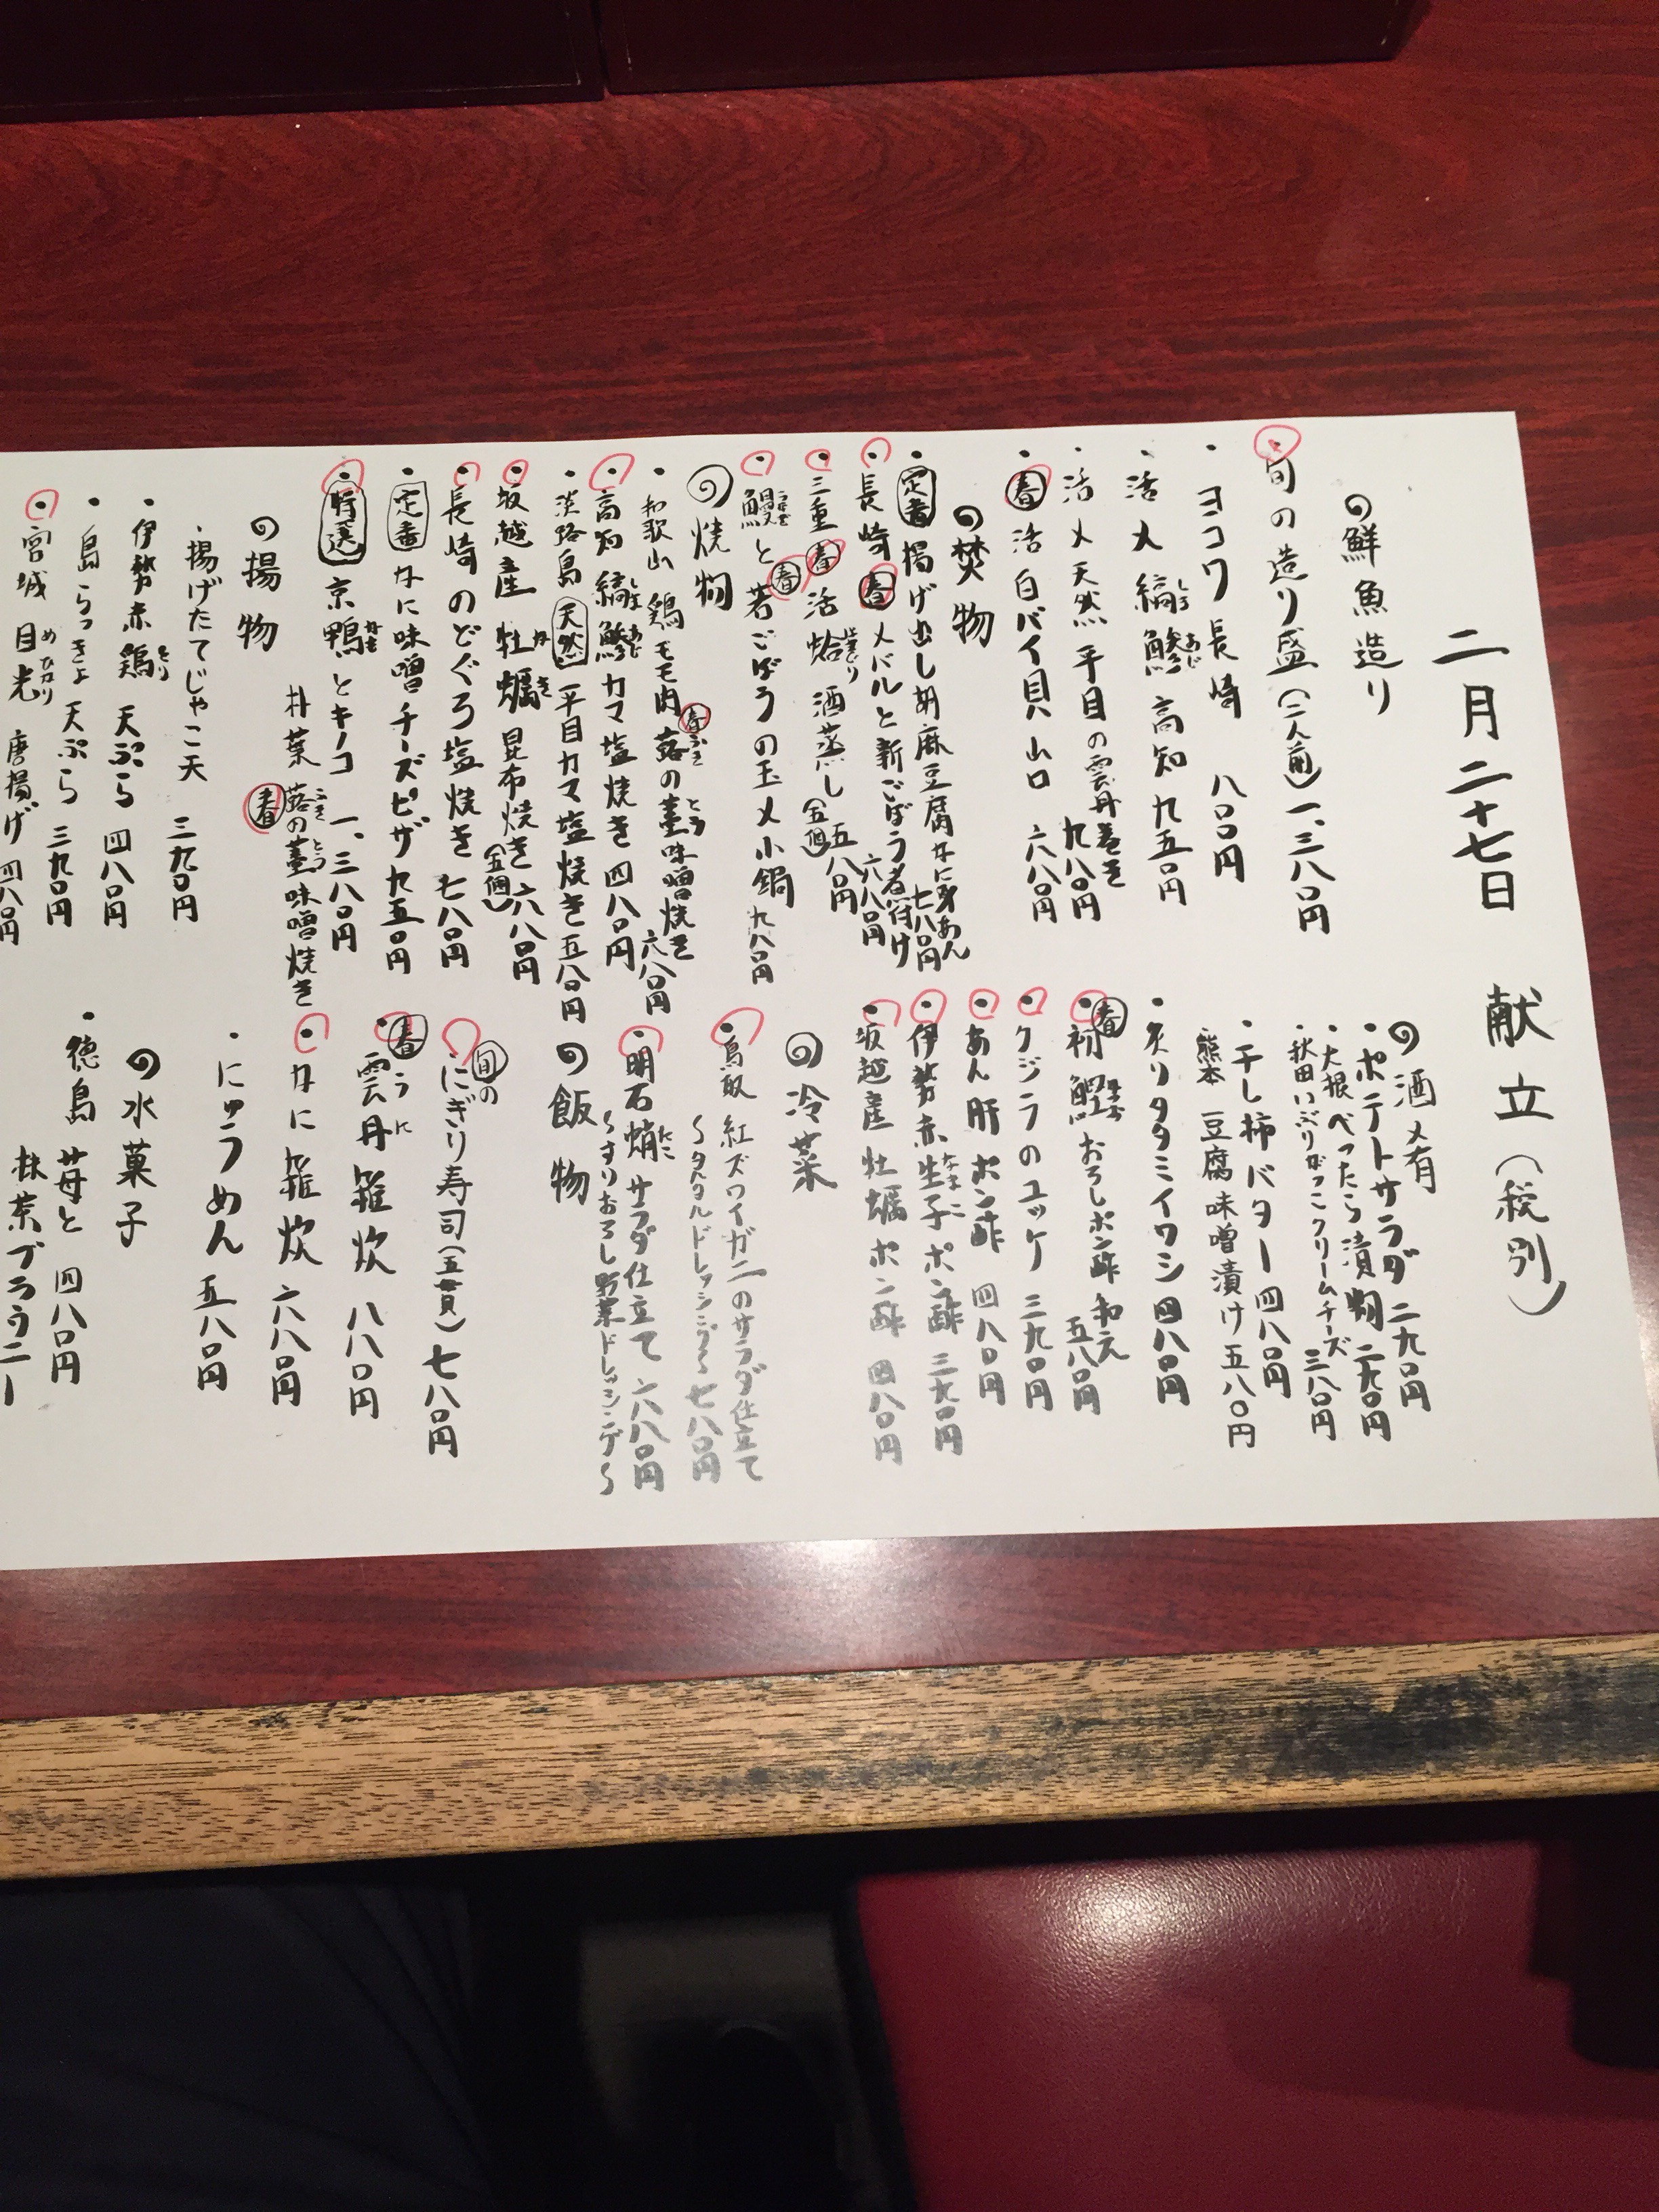 二月二十七日 献立(税別)
鮮魚造り
旬の造り盛(二人前)一、三八〇円
ヨコワ 長崎 八〇〇円
活〆 縞鯵 高知 九五〇円
しま あじ
活〆 天然 平目の雲丹巻き
九八〇円
春 活 白バイ貝 山口 六八〇円
焚物
定番 揚げ出し胡麻豆腐かに身あん
七八〇円
長崎 春 メバルと新ごぼう煮付け
六八〇円
三重 春 活 蛤 酒蒸し(五個)五八〇円
はまぐり
鰻と春若ごぼうの玉〆小鍋 九八〇円
うなぎ
焼物
和歌山 鶏モモ肉 春 蕗の薹味噌焼き
ふき とう
六八〇円
高知 縞鯵カマ塩焼き 四八〇円
しま あじ
淡路島 天然 平目カマ塩焼き 五八〇円
坂越産 牡蠣 昆布焼き(五個)六八〇円
かき
長崎 のどぐろ塩焼き 七八〇円
定番 かに味噌チーズピザ 九五〇円
特選 京鴨とキノコ 一、三八〇円
かも
朴葉 春 蕗の薹味噌焼き
ふき とう
揚物
揚げたてじゃこ天 三九〇円
伊勢赤鶏 天ぷら 四八〇円
とり
島らっきょ 天ぷら 三九〇円
宮城 目光 唐揚げ 四八〇円
めひかり
酒肴
ポテトサラダ 二九〇円
大根べったら漬物 二九〇円
秋田いぶりがっこクリームチーズ
三八〇円
干し柿バター 四八〇円
熊本 豆腐 味噌漬け 五八〇円
炙りタタミイワシ 四八〇円
春 初鰹おろしポン酢和え
かつお
五八〇円
クジラのユッケ 三九〇円
あん肝ポン酢 四八〇円
伊勢赤生子ポン酢 三九〇円
なまこ
坂越産 牡蠣ポン酢 四八〇円
冷菜
鳥取 紅ズワイガニのサラダ仕立て
〜タルタルドレッシング〜 七八〇円
明石蛸 サラダ仕立て 六八〇円
たこ
〜すりおろし野菜ドレッシング〜
飯物
旬の
にぎり寿司(五貫)七八〇円
春 雲丹雑炊 八八〇円
うに
かに雑炊 六八〇円
にゅうめん 五八〇円
水菓子
徳島 苺と 四八〇円
抹茶ブラウニー